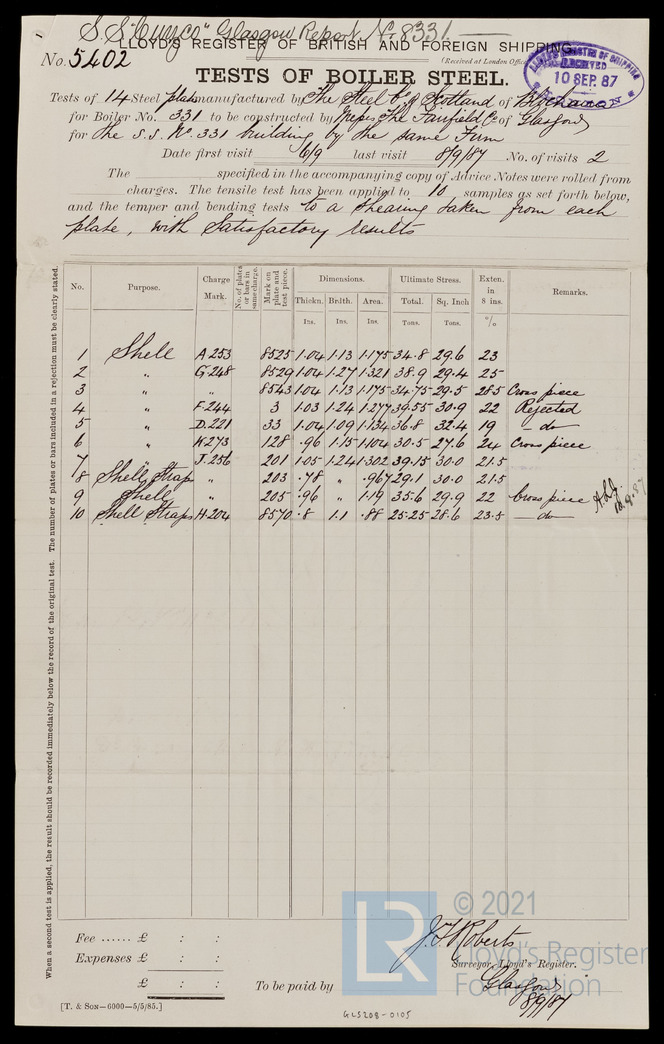 S.S. "Cuzco" Glasgow Report No. 8331
LLOYD'S REGISTER OF BRITISH AND FOREIGN SHIPPING.
No. 5402
(Received at London Office
LLOYD'S REGISTER OF SHIPPING
RECEIVED
10 SEP. 87
LONDON
TESTS OF BOILER STEEL.
Tests of 14 Steel plates manufactured by The Steel Co of Scotland of
for Boiler No. 331 to be constructed by Messrs The Fairfield Co of Glasgow
for the S.S. No. 331 building by the same Firm
Date first visit 6/9 last visit 8/9/87 No. of visits 2
The specified in the accompanying copy of Advice Notes were rolled from
charges. The tensile test has been applied to 10 samples as set forth below,
and the temper and bending tests to a shearing taken from each
plate, with Satisfactory results
No. Purpose. Charge Mark. No. of plates or bars in same charge. Mark on plate and test piece. Dimensions. Ultimate Stress. Exten. in 8 ins. Remarks.
Thickn. Brdth. Area. Total. Sq. Inch
Ins. Ins. Ins. Tons. Tons. %
1 Shell A.253 8525 1.04 1.13 1.175 34.8 29.6 23
2 " G.248 8529 1.04 1.27 1.321 38.9 29.4 25
3 " " 8543 1.04 1.13 1.175 34.75 29.5 28.5 Cross piece
4 " F.244 3 1.03 1.24 1.277 39.55 30.9 22 Rejected
5 " D.221 33 1.04 1.09 1.134 36.8 32.4 19 - do -
6 " K.273 128 .96 1.15 1.104 30.5 27.6 24 Cross piece
7 " J.256 201 1.05 1.24 1.302 39.15 30.0 21.5
8 Shell Straps " 203 .78 " .967 29.1 30.0 21.5
9 Shell " 205 .96 " 1.19 35.6 29.9 22 Cross piece
10 Shell Straps H.204 8570 .8 1.1 .88 25.25 28.6 23.5 - do -
10.9.87
When a second test is applied, the result should be recorded immediately below the record of the original test. The number of plates or bars included in a rejection must be clearly stated.
Fee ...... £ : :
Expenses £ : :
£ : :
To be paid by
J. F. Roberts
Surveyor, Lloyd's Register.
Glasgow
8/9/87
[T. & Son—6000—5/5/85.]
GLS208-0105
LR
© 2021
Lloyd's Register
Foundation